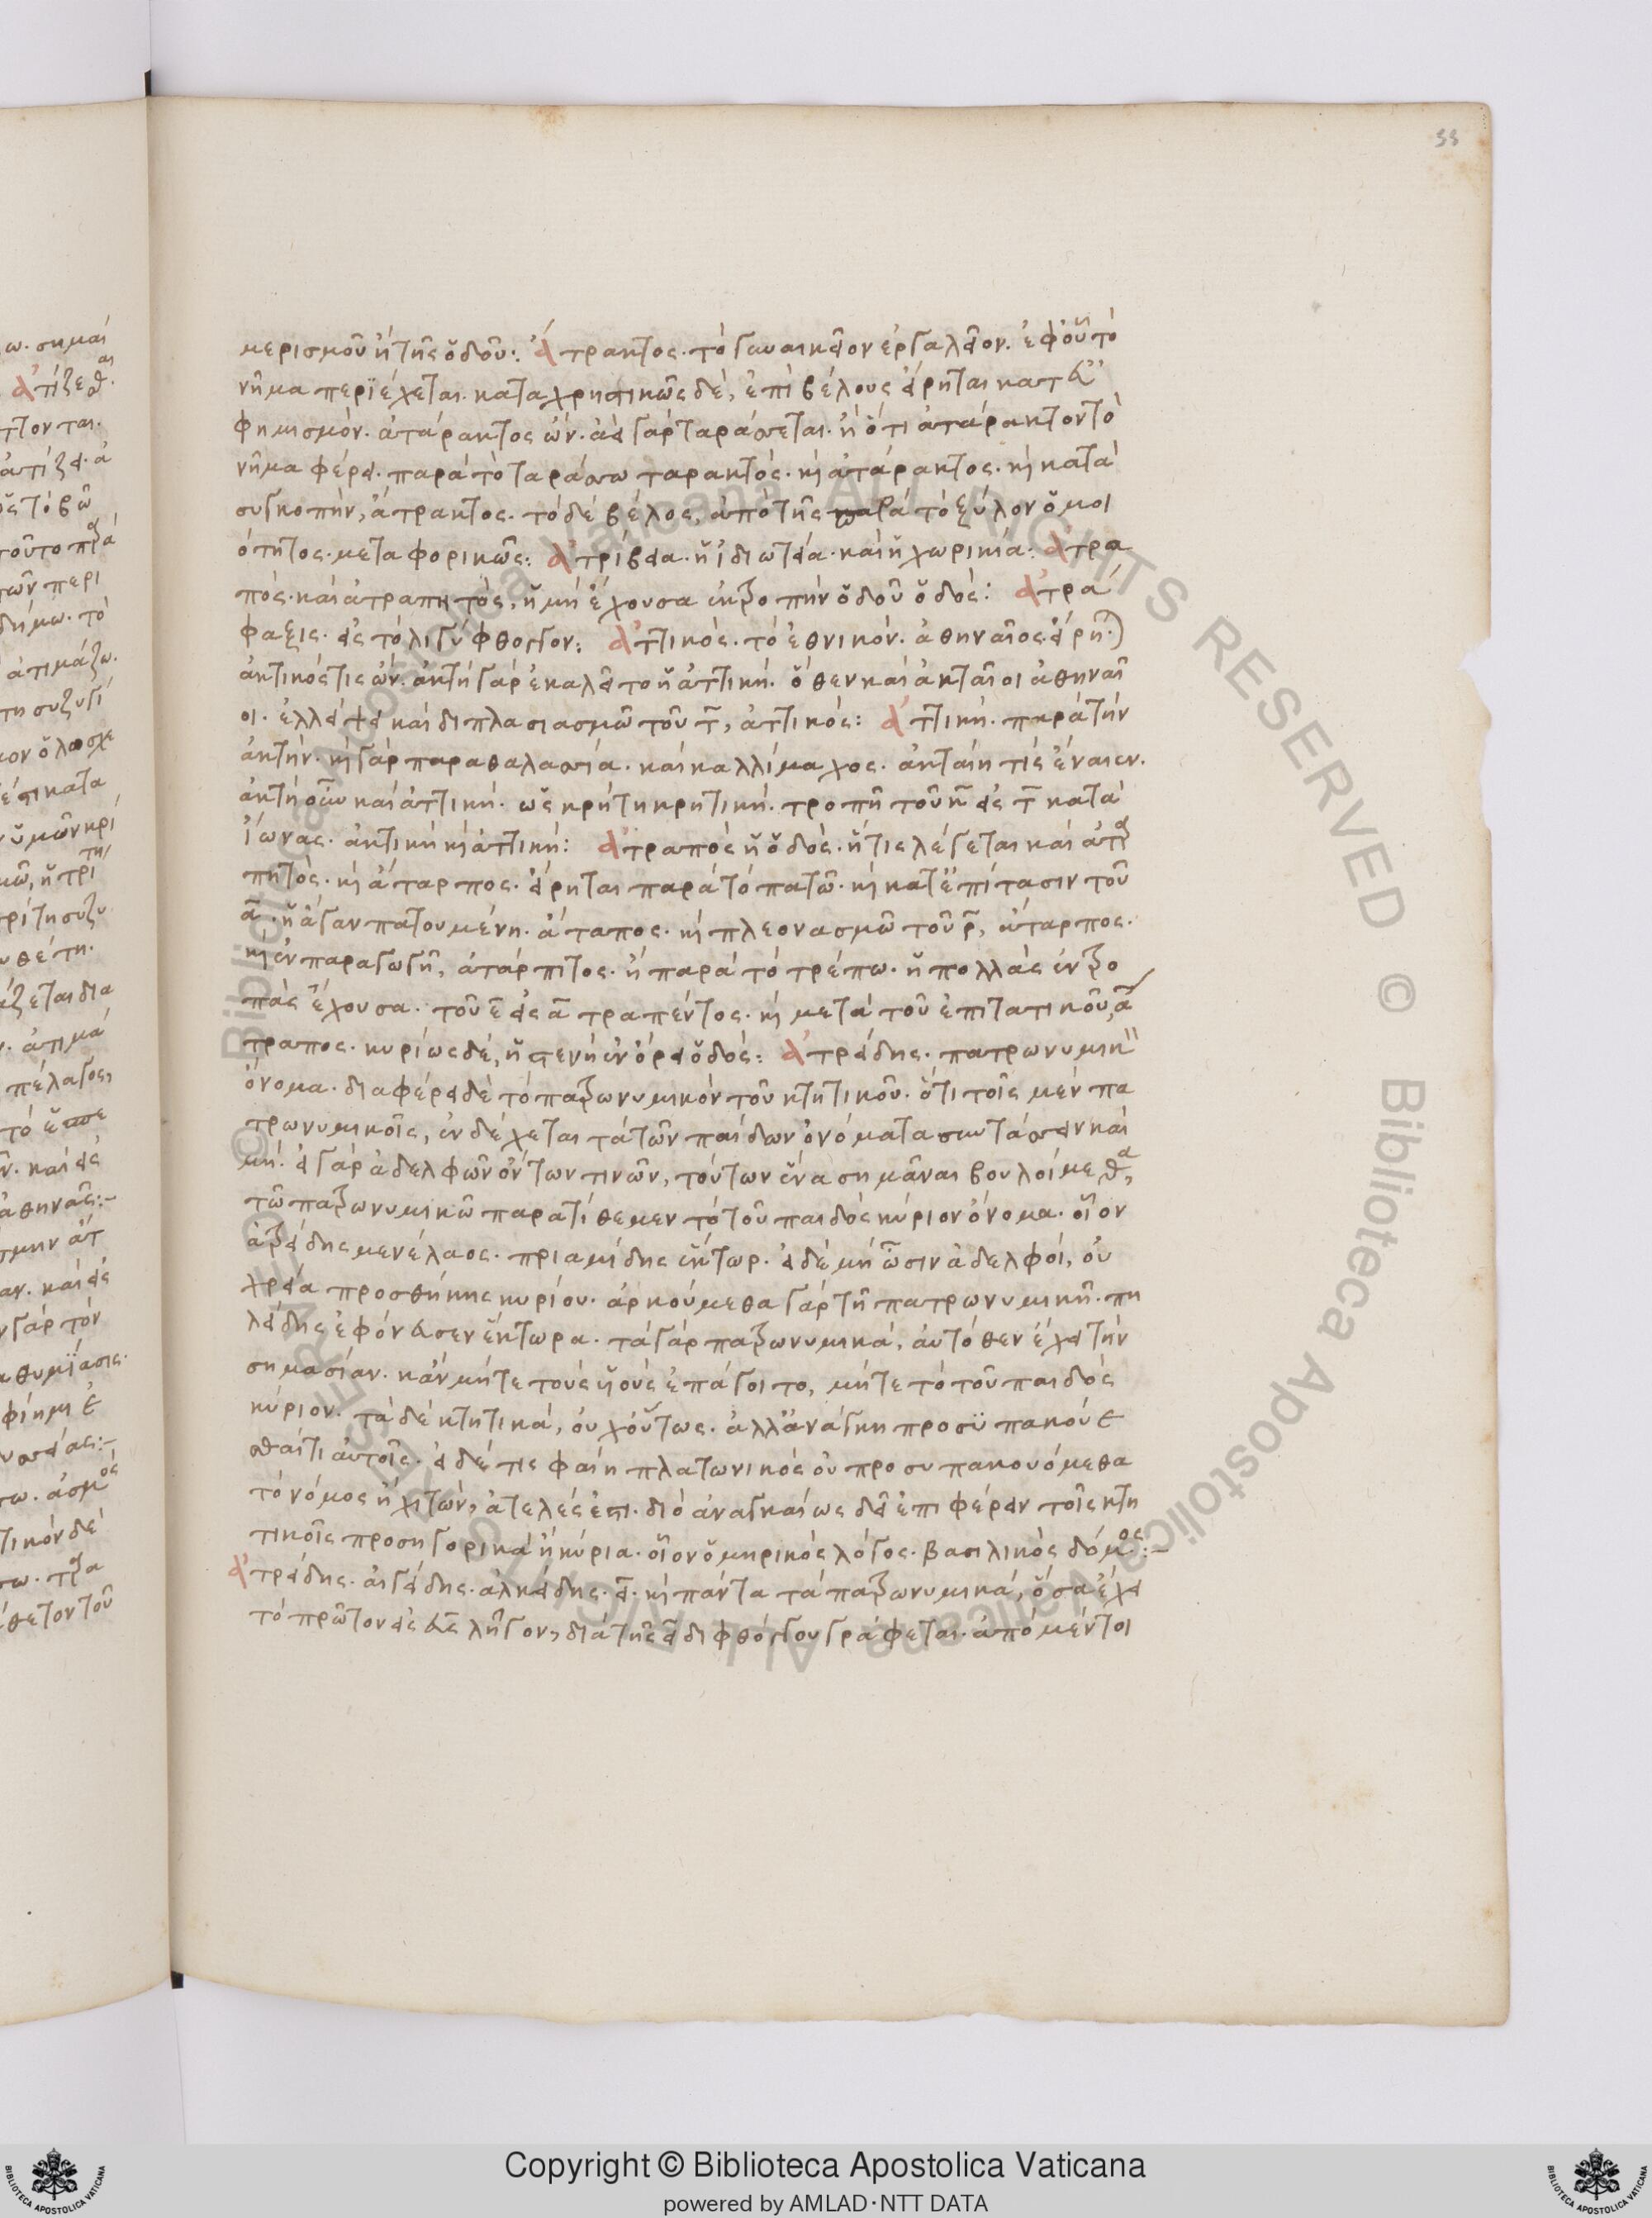 55
μερισμοῦ ἢ τῆς ὁδοῦ: ἄτρακτος. τὸ γυναικεῖον ἐργαλεῖον. ἐφ' οὗ τὸ
νῆμα περιέχεται. καταχρηστικῶς δέ, ἐπὶ βέλους εἴρηται κατ' εὐ
φημισμόν. ἀτάρακτος ὤν. ἀεὶ γὰρ ταράσσεται. ἢ ὅτι ἀτάρακτον τὸ
νῆμα φέρει. παρὰ τὸ ταράσσω ταρακτός. καὶ ἀτάρακτος. καὶ κατὰ
συγκοπήν, ἄτρακτος. τὸ δὲ βέλος, ἀπὸ τῆς παρὰ τὸ ξύλον ὁμοι
ότητος. μεταφορικῶς: ἀτρίβεια. ἡ ἰδιωτεία. καὶ ἡ χωρικία: ἀτρα
πός. καὶ ἀτραπητός, ἡ μὴ ἔχουσα ἐκτροπὴν ὁδοῦ ὁδός: ἀτρά
φαξις. εἰς τὸ λιγύφθογγον: ἀττικός. τὸ ἐθνικόν. ἀθηναῖος. εἴρη
ἀκτικός τις ὤν. ἀκτὴ γὰρ ἐκαλεῖτο ἡ ἀττική. ὅθεν καὶ ἀκταῖοι ἀθηναῖ
οι. ἐλλείψει καὶ διπλασιασμῶ τοῦ τ, ἀττικός: ἀττική. παρὰ τὴν
ἀκτήν. καὶ γὰρ παραθαλασσία. καὶ καλλίμαχος. ἀκταίη τίς ἔναιεν.
ἀκτὴ οὖν καὶ ἀττική. ὡς κρήτη κρητική. τροπῆ τοῦ κ εἰς τ κατὰ
ἴωνας. ἀκτικὴ καὶ ἀττική: ἀτραπὸς ἡ ὁδός. ἥτις λέγεται καὶ ἀτρα
πητός. καὶ ἀταρπος. εἴρηται παρὰ τὸ πατῶ. καὶ κατ' ἐπίτασιν τοῦ
α. ἡ ἄγαν πατουμένη. ἄταπος. καὶ πλεονασμῶ τοῦ ρ, ἀταρπος.
καὶ ἐν παραγωγῆ, ἀτάρπιτος. ἢ παρὰ τὸ τρέπω. ἡ πολλὰς ἐντρο
πὰς ἔχουσα. τοῦ ε εἰς α τραπέντος. καὶ μετὰ τοῦ ἐπιτατικοῦ α
τραπος. κυρίως δέ, ἡ στενὴ ἐν ὄρει ὁδός: ἀτρείδης. πατρωνυμικ
ὄνομα. διαφέρει δὲ τὸ πατρωνυμικὸν τοῦ κτητικοῦ. ὅτι τοῖς μὲν πα
τρωνυμικοῖς, ἐνδέχεται τὰ τῶν παίδων ὀνόματα συντάσσειν καὶ
μή. εἰ γὰρ ἀδελφῶν ὄντων τινῶν, τούτων ἕνα σημᾶναι βουλοίμεθα,
τῶ πατρωνυμικῶ παρατίθεμεν τὸ τοῦ παιδὸς κύριον ὄνομα. οἷον
ἀτρείδης μενέλαος. πριαμίδης ἕκτωρ. εἰ δὲ μὴ ὦσιν ἀδελφοί, οὐ
χρεία προσθήκης κυρίου. ἀρκούμεθα γὰρ τῆ πατρωνυμικῆ. πη
λείδης ἐφόνευσεν ἕκτωρα. τὰ γὰρ πατρωνυμικά, αὐτόθεν ἔχει τὴν
σημασίαν. κἂν μήτε τοὺς υἱοὺς ἐπάγοιτο, μήτε τὸ τοῦ παιδὸς
κύριον. τὰ δὲ κτητικά, οὐχ οὕτως. ἀλλ' ἀνάγκη προσϋπακούε
σθαί τι αὐτοῖς. εἰ δέ τις φαίη πλατωνικὸς οὐ προσυπακουόμεθα
τὸ νόμος ἢ χιτών, ἀτελές ἐστι. διὸ ἀναγκαίως δεῖ ἐπιφέρειν τοῖς κτη
τικοῖς προσηγορικὰ ἢ κύρια. οἷον ὁμηρικὸς λόγος. βασιλικὸς δόμος:–
ἀτρείδης. αἰγείδης. ἀλκείδης. ει. καὶ πάντα τὰ πατρωνυμικά, ὅσα ἔχει
τὸ πρῶτον εἰς ευς λῆγον, διὰ τῆς ει διφθόγγου γράφεται. ἀπὸ μέντοι
Copyright © Biblioteca Apostolica Vaticana
powered by AMLAD·NTT DATA